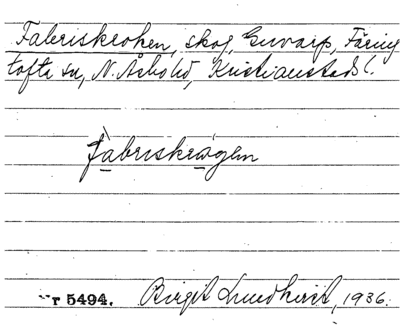 Fabriskroken, skog, Guvarp, Färing
tofta sn, N. Åsbo hd, Kristianstads l.
fàbriskrωgen
Nr 5494. Birgit Lundkvist, 1936.